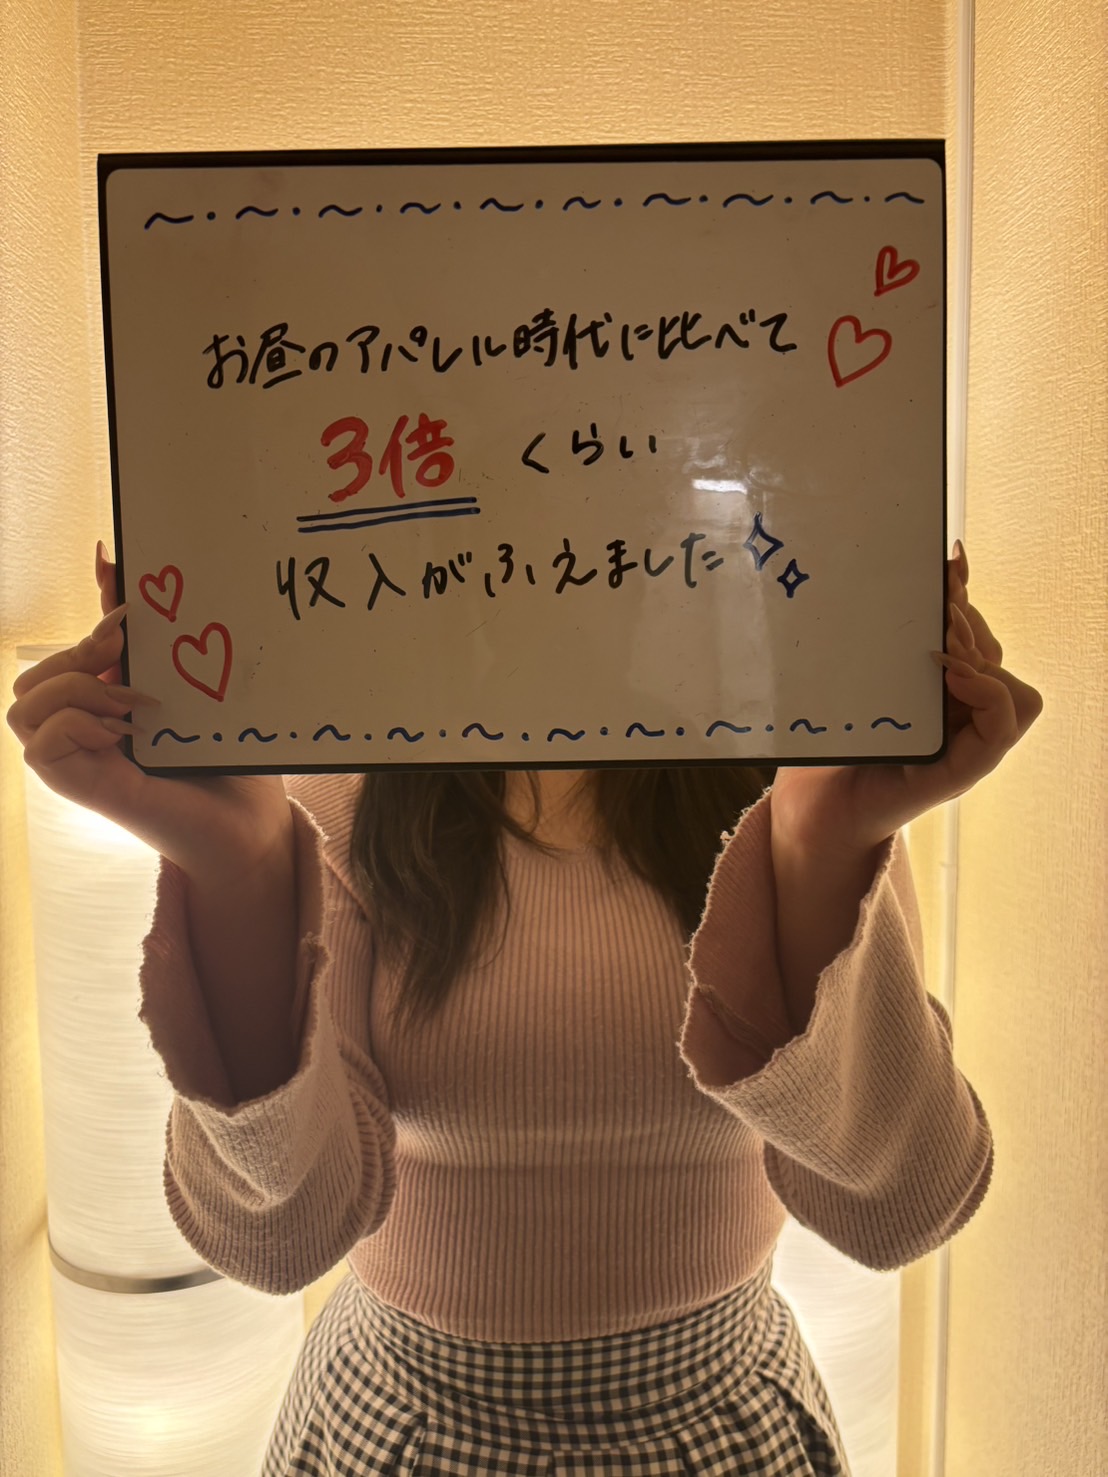 お昼のアパレル時代に比べて
3倍 くらい
収入がふえました